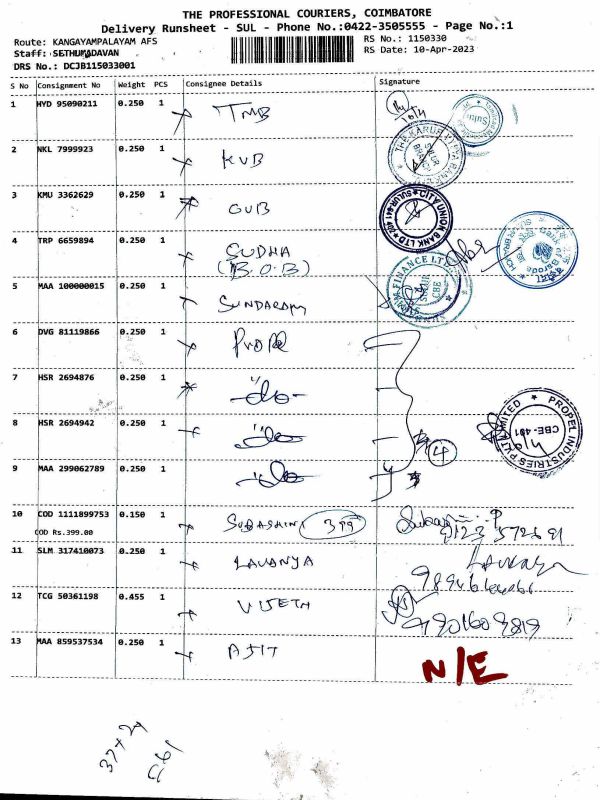 THE PROFESSIONAL COURIERS, COIMBATORE
Delivery Runsheet - SUL - Phone No.:0422-3505555 - Page No.:1
Route: KANGAYAMPALAYAM AFS
RS No.: 1150330
Staff: SETHUMADAVAN
RS Date: 10-Apr-2023
DRS No.: DCJB115033001
S No Consignment No Weight PCS Consignee Details Signature
1 HYD 95090211 0.250 1 TMB
2 NKL 7999923 0.250 1 KVB
3 KMU 3362629 0.250 1 CUB
4 TRP 6659894 0.250 1 SUDHA
(B.O.B)
5 MAA 100000015 0.250 1 SUNDARAM
6 DVG 81119866 0.250 1 Propel
7 HSR 2694876 0.250 1 -do-
8 HSR 2694942 0.250 1 -do-
4
9 MAA 299062789 0.250 1 -do-
10 COD 1111899753 0.150 1 SUBASHINI 399
COD Rs.399.00
11 SLM 317410073 0.250 1 LAVANYA
12 TCG 50361198 0.455 1 VIJETH
13 MAA 859537534 0.250 1 AJIT N/E
CITY UNION BANK LTD
PROPEL INDUSTRIES PVT LIMITED
CBE-401